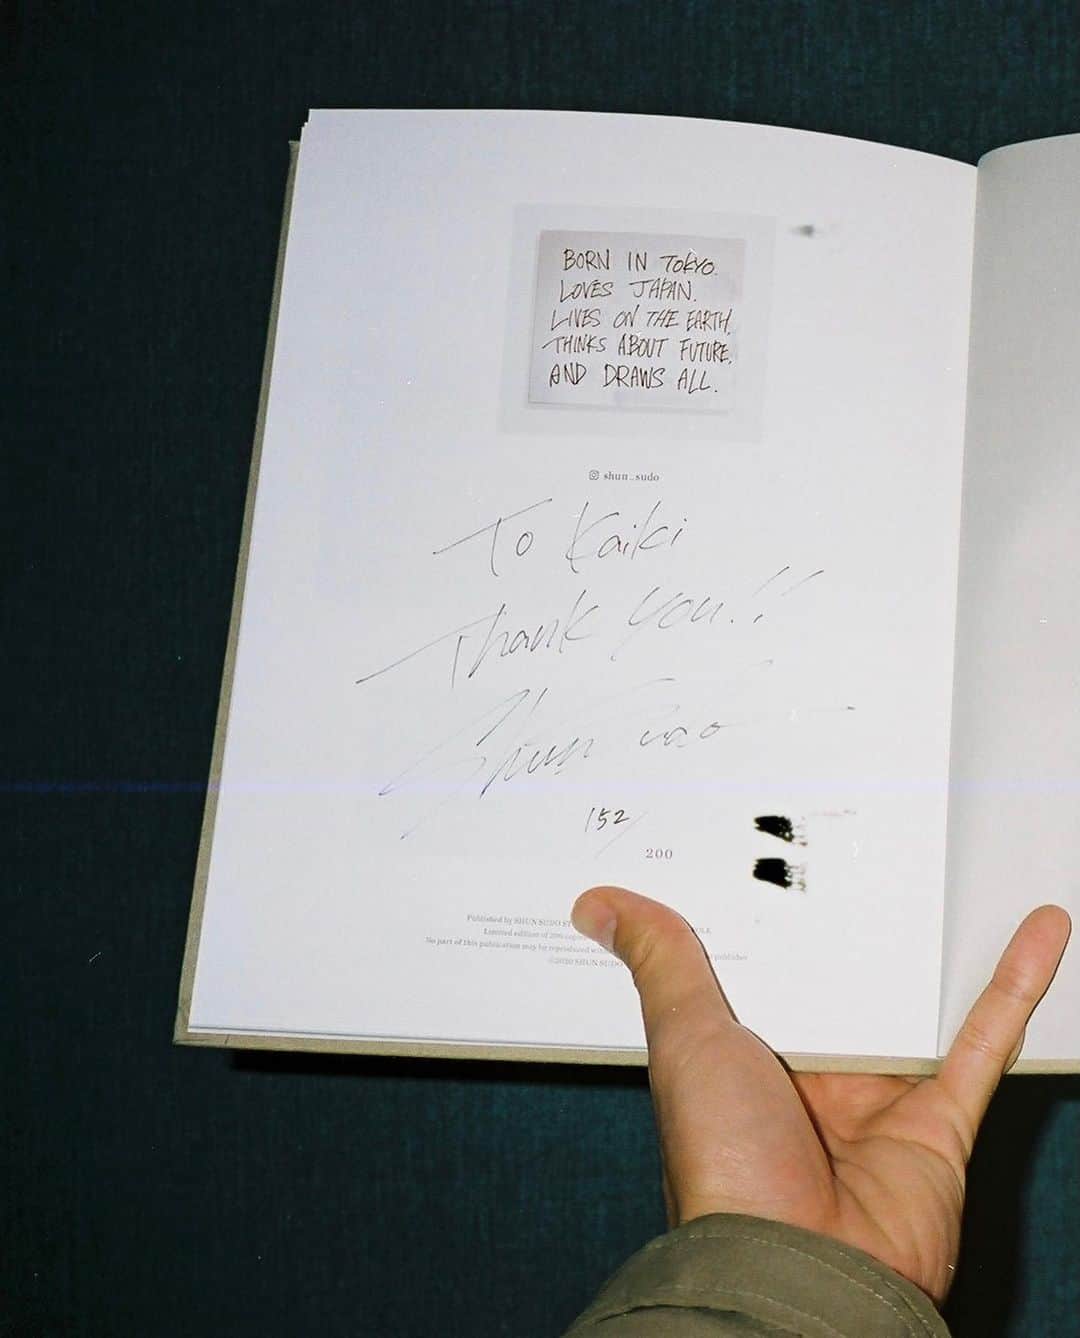 BORN IN TOKYO.
LOVES JAPAN.
LIVES ON THE EARTH.
THINKS ABOUT FUTURE.
AND DRAWS ALL.
shun_sudo
To Kaiki
Thank you!!
Shun Sudo
152/
200
Published by SHUN SUDO
Limited edition of 200 copies
No part of this publication may be reproduced publisher
©2020 SHUN SUDO